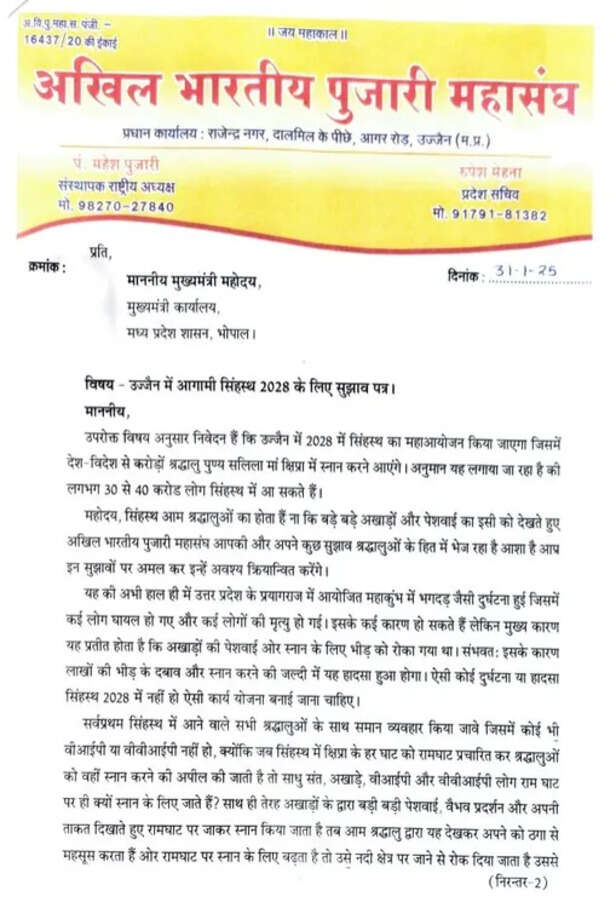 अ.वि.पु.महा.स. पंजी. –
16437/20 की ईकाई
॥ जय महाकाल ॥
अखिल भारतीय पुजारी महासंघ
प्रधान कार्यालय : राजेन्द्र नगर, दालमिल के पीछे, आगर रोड़, उज्जैन (म.प्र.)
पं. महेश पुजारी
संस्थापक राष्ट्रीय अध्यक्ष
मो. 98270-27840
रुपेश मेहता
प्रदेश सचिव
मो. 91791-81382
क्रमांक :
दिनांक : 31-1-25
प्रति,
माननीय मुख्यमंत्री महोदय,
मुख्यमंत्री कार्यालय,
मध्य प्रदेश शासन, भोपाल।
विषय - उज्जैन में आगामी सिंहस्थ 2028 के लिए सुझाव पत्र।
माननीय,
उपरोक्त विषय अनुसार निवेदन हैं कि उज्जैन में 2028 में सिंहस्थ का महाआयोजन किया जाएगा जिसमें
देश-विदेश से करोड़ों श्रद्धालु पुण्य सलिला मां क्षिप्रा में स्नान करने आएंगे। अनुमान यह लगाया जा रहा है की
लगभग 30 से 40 करोड लोग सिंहस्थ में आ सकते हैं।
महोदय, सिंहस्थ आम श्रद्धालुओं का होता हैं ना कि बड़े बड़े अखाड़ों और पेशवाई का इसी को देखते हुए
अखिल भारतीय पुजारी महासंघ आपकी और अपने कुछ सुझाव श्रद्धालुओं के हित में भेज रहा है आशा है आप
इन सुझावों पर अमल कर इन्हें अवश्य क्रियान्वित करेंगे।
यह की अभी हाल ही में उत्तर प्रदेश के प्रयागराज में आयोजित महाकुंभ में भगदड़ जैसी दुर्घटना हुई जिसमें
कई लोग घायल हो गए और कई लोगों की मृत्यु हो गई। इसके कई कारण हो सकते हैं लेकिन मुख्य कारण
यह प्रतीत होता है कि अखाड़ों की पेशवाई ओर स्नान के लिए भीड़ को रोका गया था। संभवत: इसके कारण
लाखों की भीड़ के दबाव और स्नान करने की जल्दी में यह हादसा हुआ होगा। ऐसी कोई दुर्घटना या हादसा
सिंहस्थ 2028 में नहीं हो ऐसी कार्य योजना बनाई जाना चाहिए।
सर्वप्रथम सिंहस्थ में आने वाले सभी श्रद्धालुओं के साथ समान व्यवहार किया जावे जिसमें कोई भी
वीआईपी या वीवीआईपी नहीं हो, क्योंकि जब सिंहस्थ में क्षिप्रा के हर घाट को रामघाट प्रचारित कर श्रद्धालुओं
को वहीं स्नान करने की अपील की जाती है तो साधु संत, अखाड़े, वीआईपी और वीवीआईपी लोग राम घाट
पर ही क्यों स्नान के लिए जाते हैं? साथ ही तेरह अखाड़ों के द्वारा बड़ी बड़ी पेशवाई, वैभव प्रदर्शन और अपनी
ताकत दिखाते हुए रामघाट पर जाकर स्नान किया जाता है तब आम श्रद्धालु द्वारा यह देखकर अपने को ठगा से
महसूस करता हैं ओर रामघाट पर स्नान के लिए बढ़ता है तो उसे नदी क्षेत्र पर जाने से रोक दिया जाता है उससे
(निरन्तर-2)